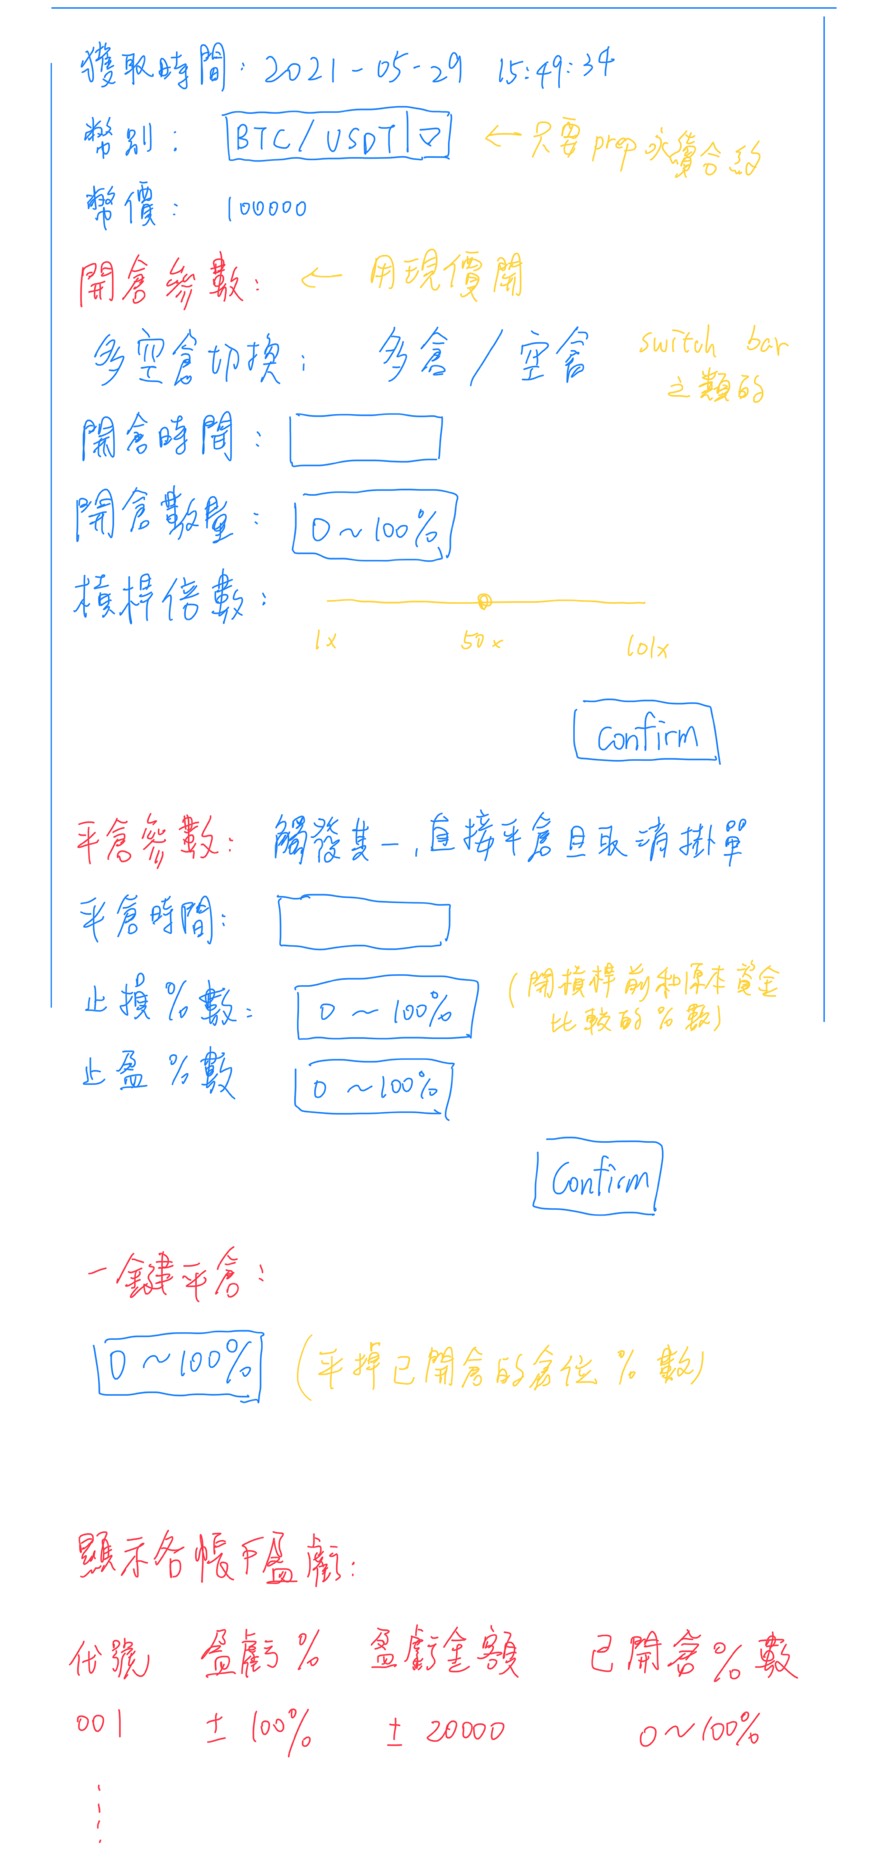 獲取時間: 2021-05-29 15:49:34
幣別: BTC/USDT ▽ ← 只要 prep 永續合約
幣價: 100000
開倉參數: ← 用現價開
多空倉切換: 多倉 / 空倉 switch bar 之類的
開倉時間:
開倉數量: 0~100%
槓桿倍數:
1x 50x 101x
Confirm
平倉參數: 觸發其一,直接平倉且取消掛單
平倉時間:
止損%數: 0~100% (開槓桿前和原本資金
比較的%數)
止盈%數 0~100%
Confirm
一鍵平倉:
0~100% (平掉已開倉的倉位%數)
顯示各帳戶盈虧:
代號 盈虧% 盈虧金額 已開倉%數
001 ±100% ±20000 0~100%